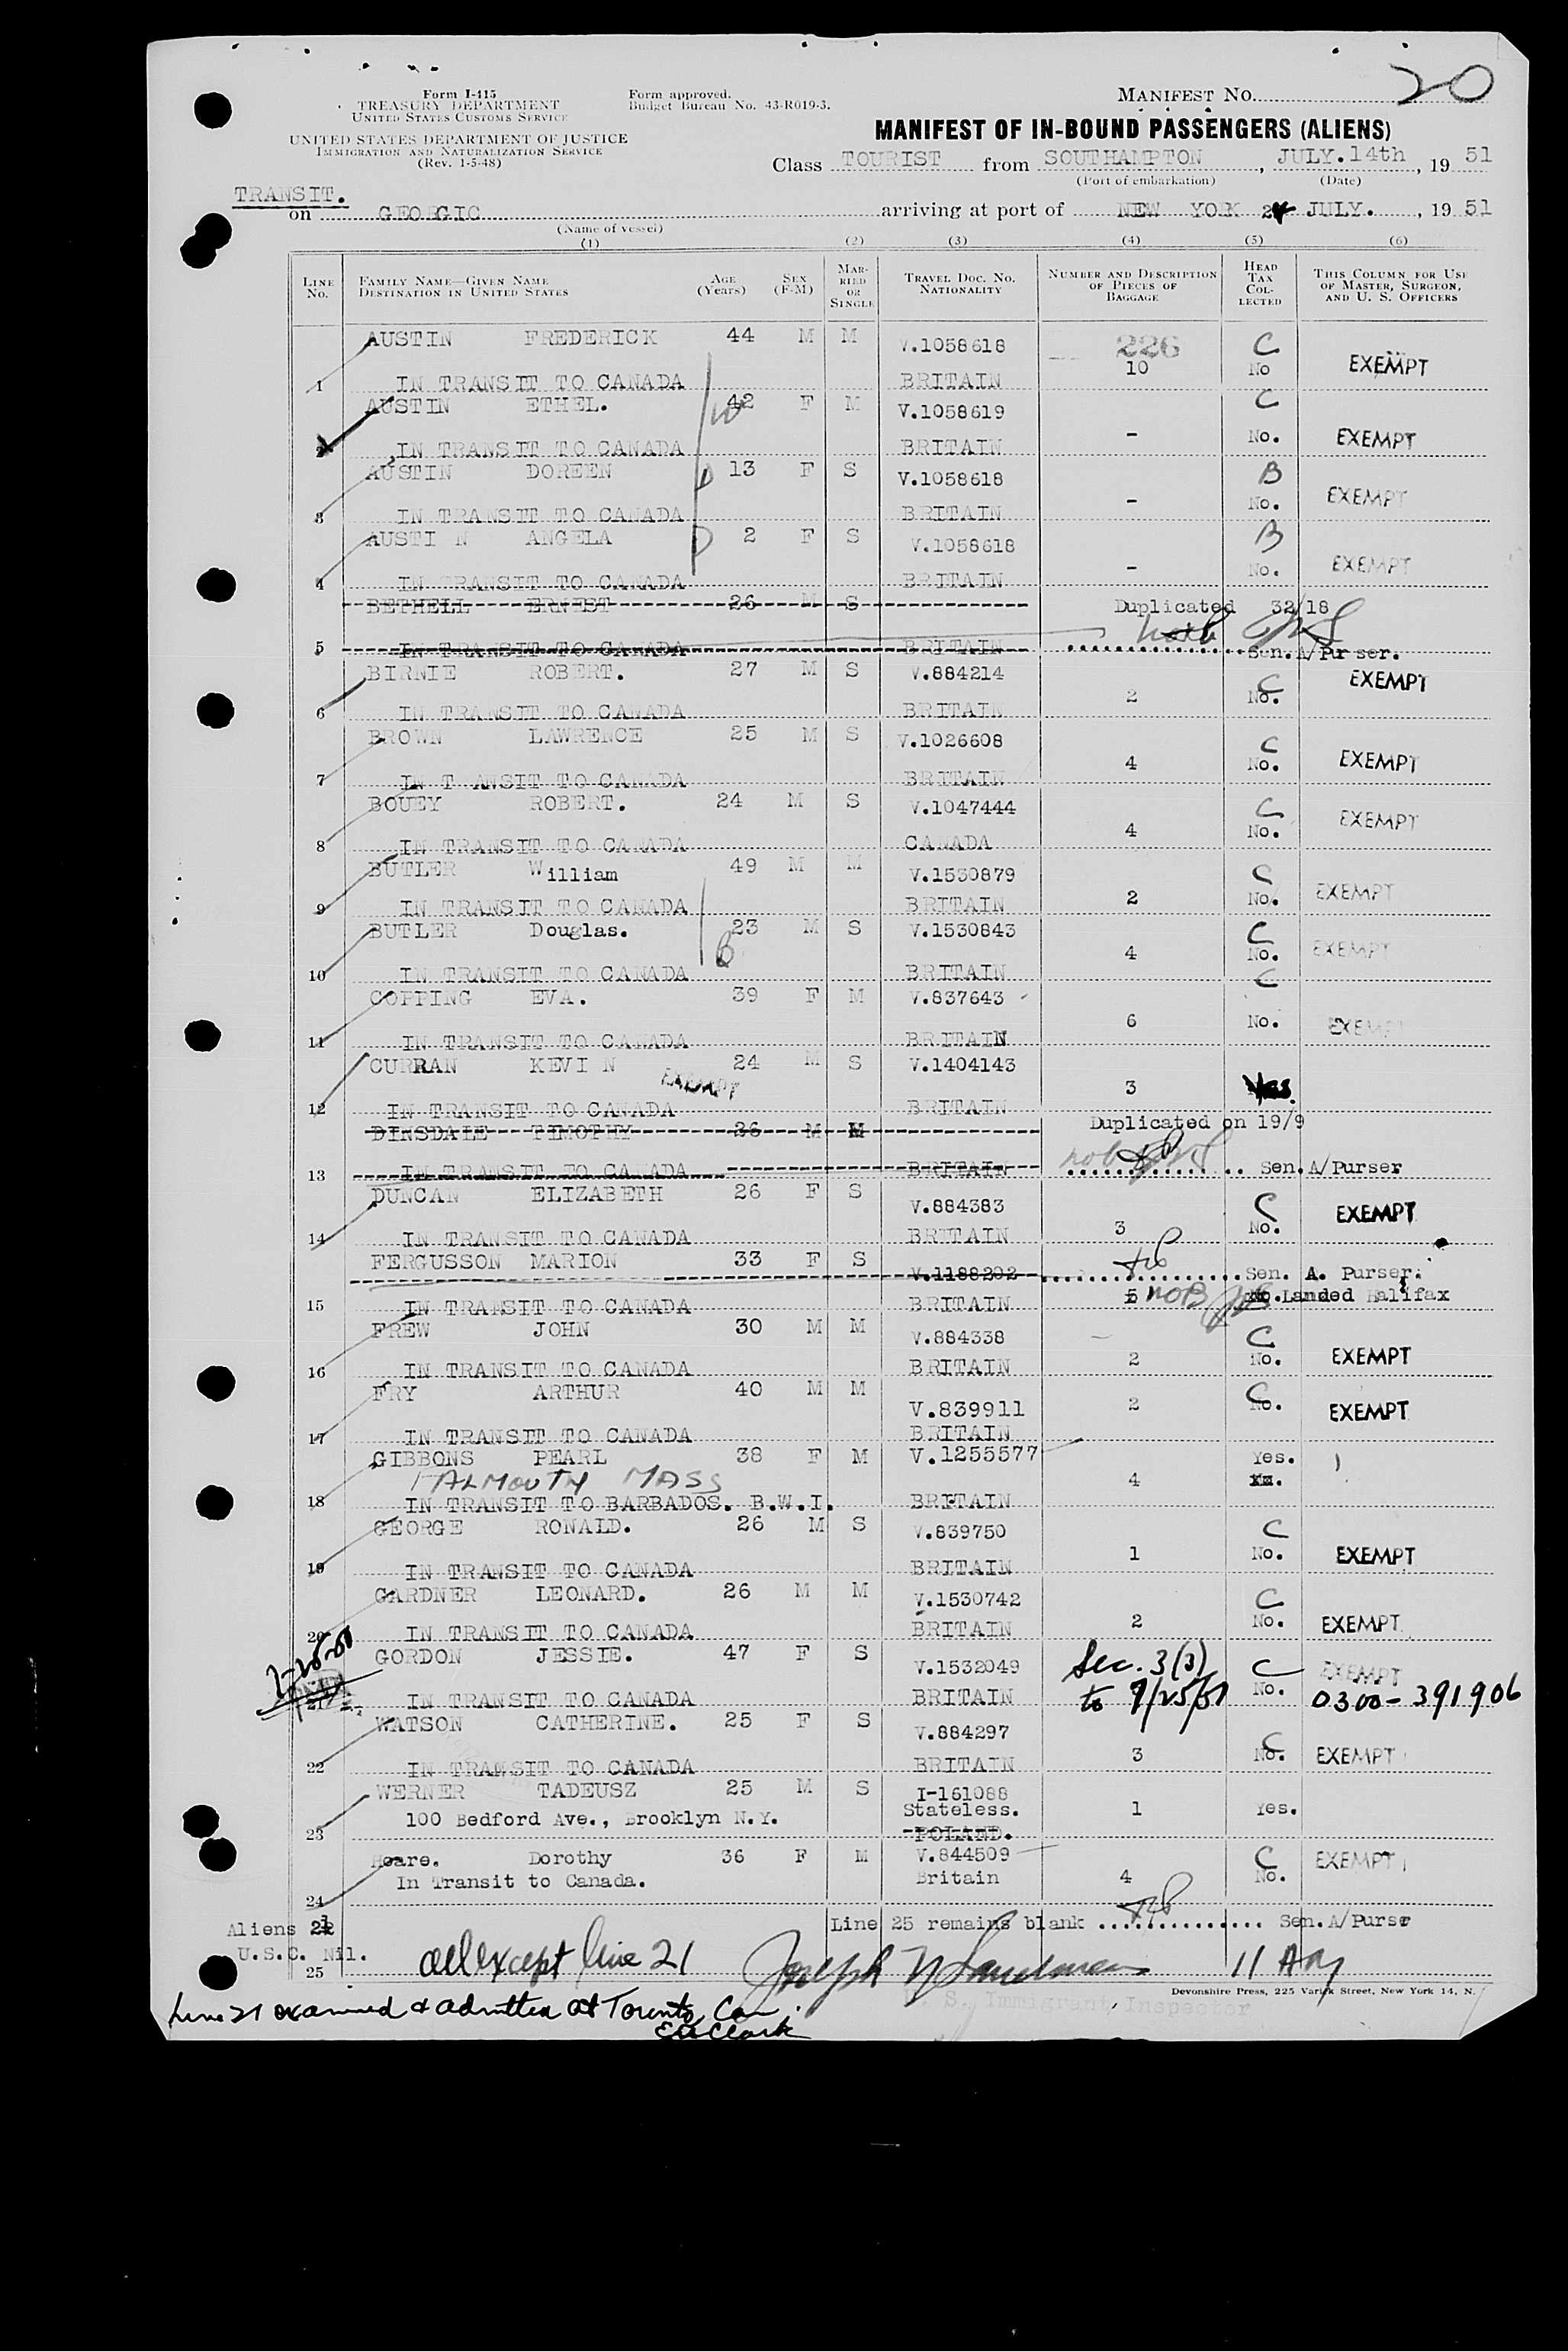 Form I-415
TREASURY DEPARTMENT
UNITED STATES CUSTOMS SERVICE
UNITED STATES DEPARTMENT OF JUSTICE
IMMIGRATION AND NATURALIZATION SERVICE
(Rev. 1-5-48)
Form approved.
Budget Bureau No. 43-R019-3.
MANIFEST NO. 20
MANIFEST OF IN-BOUND PASSENGERS (ALIENS)
Class TOURIST from SOUTHAMPTON, JULY.14th, 19 51
(Port of embarkation) (Date)
TRANSIT.
on GEORGIC arriving at port of NEW YORK 24 JULY., 19 51
(Name of vessel)
(1) (2) (3) (4) (5) (6)
LINE NO. FAMILY NAME—GIVEN NAME DESTINATION IN UNITED STATES AGE (Years) SEX (F-M) MARRIED OR SINGLE TRAVEL DOC. NO. NATIONALITY NUMBER AND DESCRIPTION OF PIECES OF BAGGAGE HEAD TAX COLLECTED THIS COLUMN FOR USE OF MASTER, SURGEON, AND U. S. OFFICERS
AUSTIN FREDERICK 44 M M V.1058618 226 10 C No EXEMPT
1 IN TRANSIT TO CANADA BRITAIN
AUSTIN ETHEL. 42 F M V.1058619 C
2 IN TRANSIT TO CANADA BRITAIN - No. EXEMPT
AUSTIN DOREEN 13 F S V.1058618 B
3 IN TRANSIT TO CANADA BRITAIN - No. EXEMPT
AUSTI N ANGELA 2 F S V.1058618 B
4 IN TRANSIT TO CANADA BRITAIN - No. EXEMPT
BETHELL ERNEST 26 M S Duplicated 32/18
5 IN TRANSIT TO CANADA BRITAIN Sen. A/Pur ser.
BIRNIE ROBERT. 27 M S V.884214 C EXEMPT
6 IN TRANSIT TO CANADA BRITAIN 2 No.
BROWN LAWRENCE 25 M S V.1026608 C
7 IN T ANSIT TO CANADA BRITAIN 4 No. EXEMPT
BOUEY ROBERT. 24 M S V.1047444 C
8 IN TRANSIT TO CANADA CANADA 4 No. EXEMPT
BUTLER William 49 M M V.1530879 C
9 IN TRANSIT TO CANADA BRITAIN 2 No. EXEMPT
BUTLER Douglas. 23 M S V.1530843 C
10 IN TRANSIT TO CANADA BRITAIN 4 No. EXEMPT
COPPING EVA. 39 F M V.837643 C
11 IN TRANSIT TO CANADA BRITAIN 6 No. EXEMPT
CURRAN KEVI N 24 M S V.1404143
EXEMPT
12 IN TRANSIT TO CANADA BRITAIN 3 Yes.
DINSDALE TIMOTHY 26 M M Duplicated on 19/9
13 IN TRANSIT TO CANADA BRITAIN Sen. A/Purser
DUNCAN ELIZABETH 26 F S V.884383 C EXEMPT
14 IN TRANSIT TO CANADA BRITAIN 3 No.
FERGUSSON MARION 33 F S V.1188202 Sen. A. Purser.
15 IN TRANSIT TO CANADA BRITAIN 5 NOB Landed Halifax
FREW JOHN 30 M M V.884338 C
16 IN TRANSIT TO CANADA BRITAIN 2 No. EXEMPT
FRY ARTHUR 40 M M V.839911 2 C No. EXEMPT
17 IN TRANSIT TO CANADA BRITAIN
GIBBONS PEARL 38 F M V.1255577 Yes.
FALMOUTH MASS 4
18 IN TRANSIT TO BARBADOS. B.W.I. BRITAIN
GEORGE RONALD. 26 M S V.839750 C
19 IN TRANSIT TO CANADA BRITAIN 1 No. EXEMPT
GARDNER LEONARD. 26 M M V.1530742 C
20 IN TRANSIT TO CANADA BRITAIN 2 No. EXEMPT
GORDON JESSIE. 47 F S V.1532049 Sec. 3(3) C EXEMPT
21 IN TRANSIT TO CANADA BRITAIN to 9/25/51 No. 0300-391906
WATSON CATHERINE. 25 F S V.884297 C
22 IN TRANSIT TO CANADA BRITAIN 3 No. EXEMPT
WERNER TADEUSZ 25 M S I-161088
100 Bedford Ave., Brooklyn N.Y. Stateless. 1 Yes.
23 POLAND.
Hoare. Dorothy 36 F M V.844509 C EXEMPT
In Transit to Canada. Britain 4 No.
24
Aliens 21 Line 25 remains blank Sen. A/Purse
U.S.C. Nil.
25 all except line 21 Joseph 11 AM
U. S. Immigrant Inspector
Devonshire Press, 225 Varick Street, New York 14, N.
Line 21 examined & admitted at Toronto, Can.
Clark